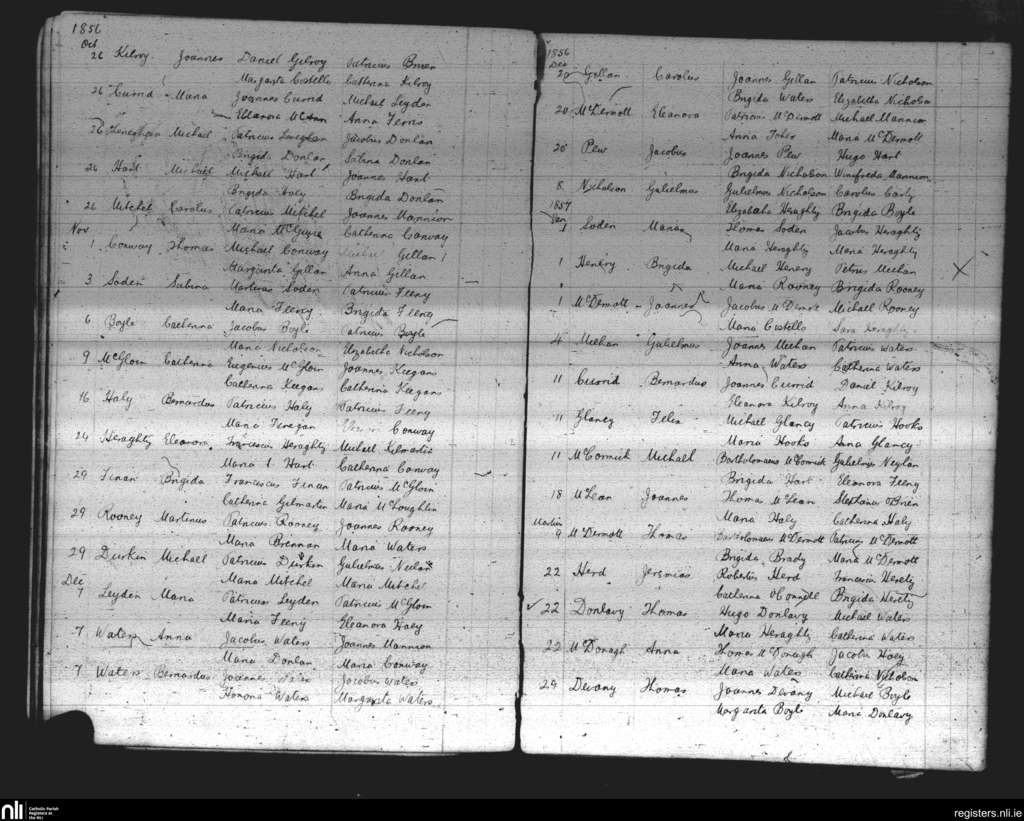 1856
Oct
26 Kilroy Joannes Daniel Gilroy Patricius Brien
Margarita Costello Catherina Kilroy
26 Currid Maria Joannes Currid Michael Leyden
Eleanora McCann Anna Ferris
26 Heneghan Michael Patricius Heneghan Jacobus Donlan
Brigida Donlan Sabina Donlan
26 Hart Michael Michael Hart Joannes Hart
Brigida Haly Brigida Donlan
26 Mitchel Carolus Patricius Mitchel Joannes Mannion
Maria McGuyre Catherina Conway
Nov
1 Conway Thomas Michael Conway Michael Gillan
Margarita Gillan Anna Gillan
3 Soden Sabina Martinus Soden Patricius Feeny
Maria Feeny Brigida Feeny
6 Boyle Catherina Jacobus Boyle Patricius Boyle
Maria Nicholson Elizabetha Nicholson
9 McGloin Catherina Eugenius McGloin Joannes Keegans
Catherina Keegans Catherina Keegans
16 Haly Bernardus Patricius Haly Patricius Feeny
Maria Finegan Conway
24 Heraghty Eleanora Franciscus Heraghty Michael Kilmartin
Maria Hart Catherina Conway
29 Finan Brigida Franciscus Finan Patricius McGloin
Catherina Gilmartin Maria McLoughlin
29 Rooney Martinus Patricius Rooney Joannes Rooney
Maria Brennan Maria Waters
29 Durkin Michael Patricius Durkin Gulielmus
Maria Mitchel Maria Mitchel
Dec
7 Leyden Maria Patricius Leyden Patricius McGloin
Maria Feeny Eleanora Haly
7 Waters Anna Jacobus Waters Joannes Mannion
Maria Donlan Maria Conway
7 Waters Bernardus Joannes Jacobus Waters
Honora Waters Margarita Waters
1856
Dec
20 Gillan Carolus Joannes Gillan Patricius Nicholson
Brigida Waters Elizabetha Nicholson
20 McDermott Eleanora Patricius McDermott Michael Mannion
Anna Foley Maria McDermott
20 Plew Jacobus Joannes Plew Hugo Hart
Brigida Nicholson Winifreda Mannion
8 Nicholson Gulielmus Gulielmus Nicholson Carolus Carty
Elizabetha Heraghty Brigida Boyle
1857
Jan
1 Soden Maria Thomas Soden Jacobus Heraghty
Maria Heraghty Maria Heraghty
1 Henery Brigida Michael Henery Petrus Meehan
Maria Rooney Brigida Rooney
1 McDermott Joannes Jacobus McDermott Michael Rooney
Maria Costello Sara Heraghty
4 Meehan Gulielmus Joannes Meehan Patricius Waters
Anna Waters Catherina Waters
11 Currid Bernardus Joannes Currid Daniel Kilroy
Eleanora Kilroy Anna Kilroy
11 Glancy Felix Michael Glancy Patricius Hooks
Maria Hooks Anna Glancy
11 McCormick Michael Bartholomaeus McCormick Gulielmus Neylan
Brigida Hart Eleanora Feeny
18 McLean Joannes Thomas McLean Stephanus Brien
Maria Haly Catherina Haly
Martius
9 McDermott Thomas Bartholomaeus McDermott Patricius McDermott
Brigida Brady Maria McDermott
22 Herd Jeremias Robertus Herd Franciscus Herety
Catherina O'Connell Brigida Herety
22 Donlavy Thomas Hugo Donlavy Michael Waters
Maria Heraghty Catherina Waters
22 McDonagh Anna Thomas McDonagh Jacobus Haly
Maria Waters Catherina Nicholson
24 Devany Thomas Joannes Devany Michael Boyle
Margarita Boyle Maria Donlavy
nli Catholic Parish Registers at the NLI
registers.nli.ie